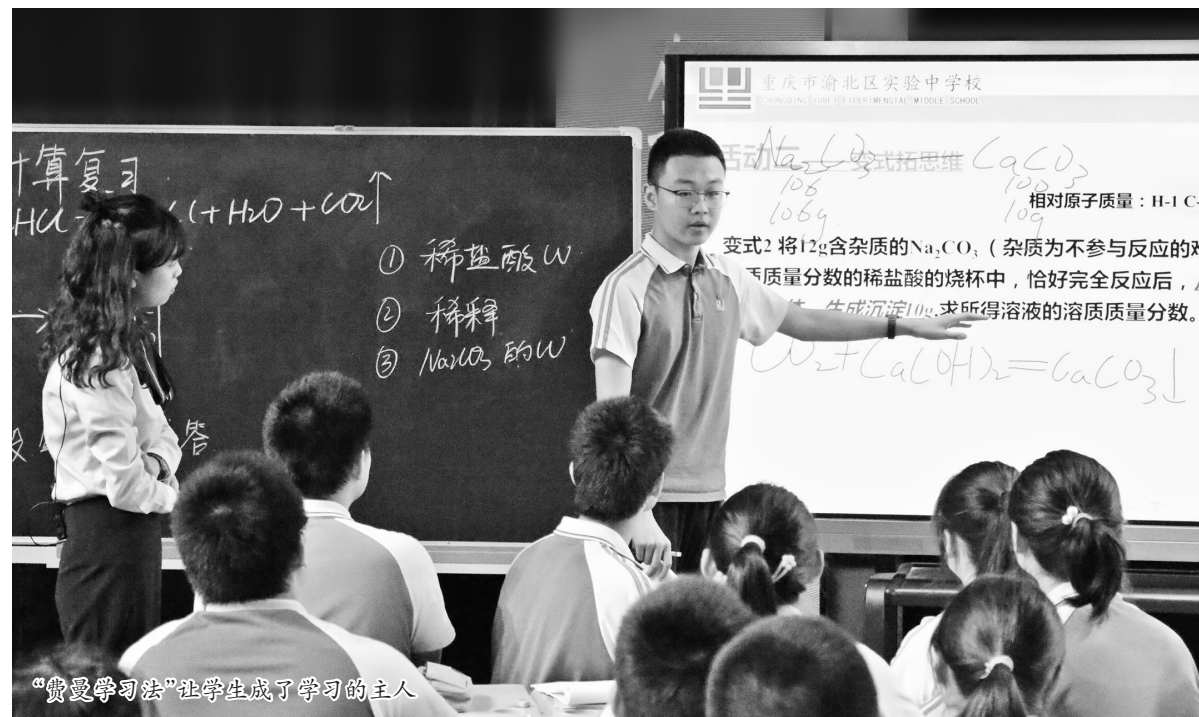 计算复习
HCl
+H2O+CO2↑
① 稀盐酸 W
② 稀释
③ Na2CO3 的W
答
重庆市渝北区实验中学校
CHONGQING YUBEI EXPERIMENGTAL MIDDLE SCHOOL
活动二 变式拓思维
Na2CO3 CaCO3
106 100
106g 10g
相对原子质量：H-1 C-
变式2 将12g含杂质的Na₂CO₃（杂质为不参与反应的
质质量分数的稀盐酸的烧杯中，恰好完全反应后，
生成沉淀10g,求所得溶液的溶质质量分数。
CO2+Ca(OH)2=CaCO3↓
“费曼学习法”让学生成了学习的主人